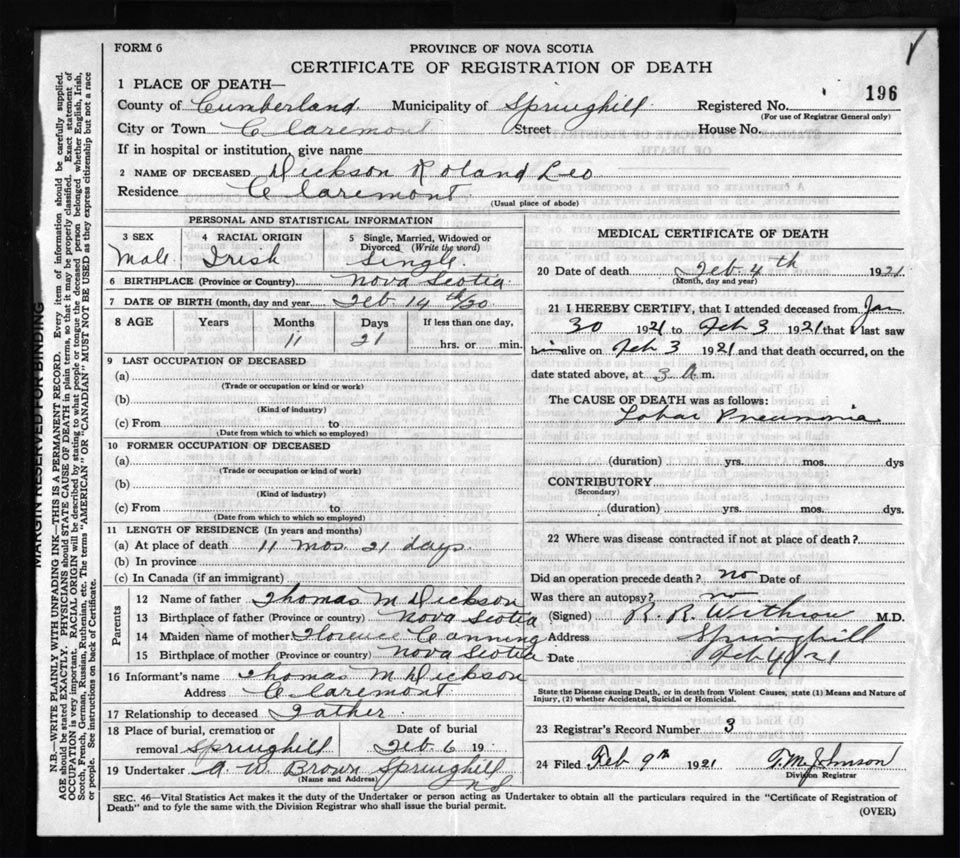 FORM 6
PROVINCE OF NOVA SCOTIA
CERTIFICATE OF REGISTRATION OF DEATH
196
1 PLACE OF DEATH—
County of Cumberland Municipality of Springhill Registered No.
(For use of Registrar General only)
City or Town Claremont Street House No.
If in hospital or institution, give name
2 NAME OF DECEASED Dickson Roland Leo
Residence Claremont
(Usual place of abode)
PERSONAL AND STATISTICAL INFORMATION
3 SEX 4 RACIAL ORIGIN 5 Single, Married, Widowed or Divorced (Write the word)
Male Irish Single
6 BIRTHPLACE (Province or Country) Nova Scotia
7 DATE OF BIRTH (month, day and year) Feb 14th/20
8 AGE Years Months Days If less than one day,
11 21 hrs. or min.
9 LAST OCCUPATION OF DECEASED
(a)
(Trade or occupation or kind of work)
(b)
(Kind of industry)
(c) From to
(Date from which to which so employed)
10 FORMER OCCUPATION OF DECEASED
(a)
(Trade or occupation or kind of work)
(b)
(Kind of industry)
(c) From to
(Date from which to which so employed)
11 LENGTH OF RESIDENCE (In years and months)
(a) At place of death 11 mos. 21 days
(b) In province
(c) In Canada (if an immigrant)
Parents
12 Name of father Thomas M Dickson
13 Birthplace of father (Province or country) Nova Scotia
14 Maiden name of mother Florence Canning
15 Birthplace of mother (Province or country) Nova Scotia
16 Informant's name Thomas M Dickson
Address Claremont
17 Relationship to deceased Father
18 Place of burial, cremation or removal Springhill Date of burial Feb 6 19
19 Undertaker A. W. Brown Springhill
(Name and Address) NS
MEDICAL CERTIFICATE OF DEATH
20 Date of death Feb 4th 1921
(Month, day and year)
21 I HEREBY CERTIFY, that I attended deceased from Jan
30 1921 to Feb 3 1921 that I last saw
him alive on Feb 3 1921 and that death occurred, on the
date stated above, at 3 A m.
The CAUSE OF DEATH was as follows:
Lobar Pneumonia
(duration) yrs. mos. dys
CONTRIBUTORY
(Secondary)
(duration) yrs. mos. dys.
22 Where was disease contracted if not at place of death?
Did an operation precede death? no Date of
Was there an autopsy? no
(Signed) R. R. Withrow M.D.
Address Springhill
Date Feb 4/21
State the Disease causing Death, or in death from Violent Causes, state (1) Means and Nature of
Injury, (2) whether Accidental, Suicidal or Homicidal.
23 Registrar's Record Number 3
24 Filed Feb 9th 1921 T.M. Johnson
Division Registrar
SEC. 46—Vital Statistics Act makes it the duty of the Undertaker or person acting as Undertaker to obtain all the particulars required in the "Certificate of Registration of
Death" and to fyle the same with the Division Registrar who shall issue the burial permit.
(OVER)
MARGIN RESERVED FOR BINDING
N.B.—WRITE PLAINLY WITH UNFADING INK—THIS IS A PERMANENT RECORD. Every item of information should be carefully supplied.
AGE should be stated EXACTLY. PHYSICIANS should STATE CAUSE OF DEATH in plain terms, so that it may be properly classified. Exact statement of
OCCUPATION is very important. RACIAL ORIGIN will be described by stating to what people or tongue the deceased person belonged whether English, Irish,
Scotch, French, German, Russian, Ruthenian, etc. The terms "AMERICAN" OR "CANADIAN" MUST NOT BE USED as they express citizenship but not a race
or people. See instructions on back of Certificate.